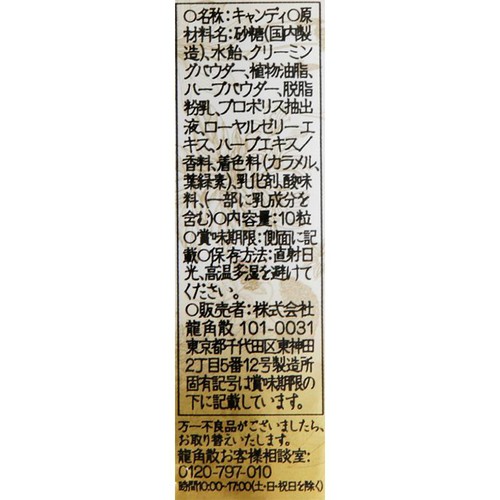 ○名称:キャンディ○原
材料名:砂糖(国内製
造)、水飴、クリーミン
グパウダー、植物油脂、
ハーブパウダー、脱脂
粉乳、プロポリス抽出
液、ローヤルゼリーエ
キス、ハーブエキス/
香料、着色料(カラメル、
葉緑素)、乳化剤、酸味
料、(一部に乳成分を
含む)○内容量:10粒
○賞味期限:側面に記
載○保存方法:直射日
光、高温多湿を避けて
ください。
○販売者:株式会社
龍角散 101-0031
東京都千代田区東神田
2丁目5番12号製造所
固有記号は賞味期限の
下に記載しています。
万一不良品がございましたら、
お取り替えいたします。
龍角散お客様相談室:
0120-797-010
時間10:00~17:00(土・日・祝日を除く)